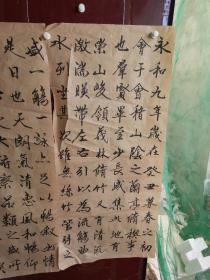 永和九年歲在癸丑暮春之初
會于會稽山陰之蘭亭脩禊事
也羣賢畢至少長咸集此地有
崇山峻領茂林脩竹又有清流
激湍暎帶左右引以為流觴曲
水列坐其次雖無絲竹管弦之
盛一觴一詠上足以暢敘幽情
是日也天朗氣清惠風和暢仰
大俯察品類之盛所